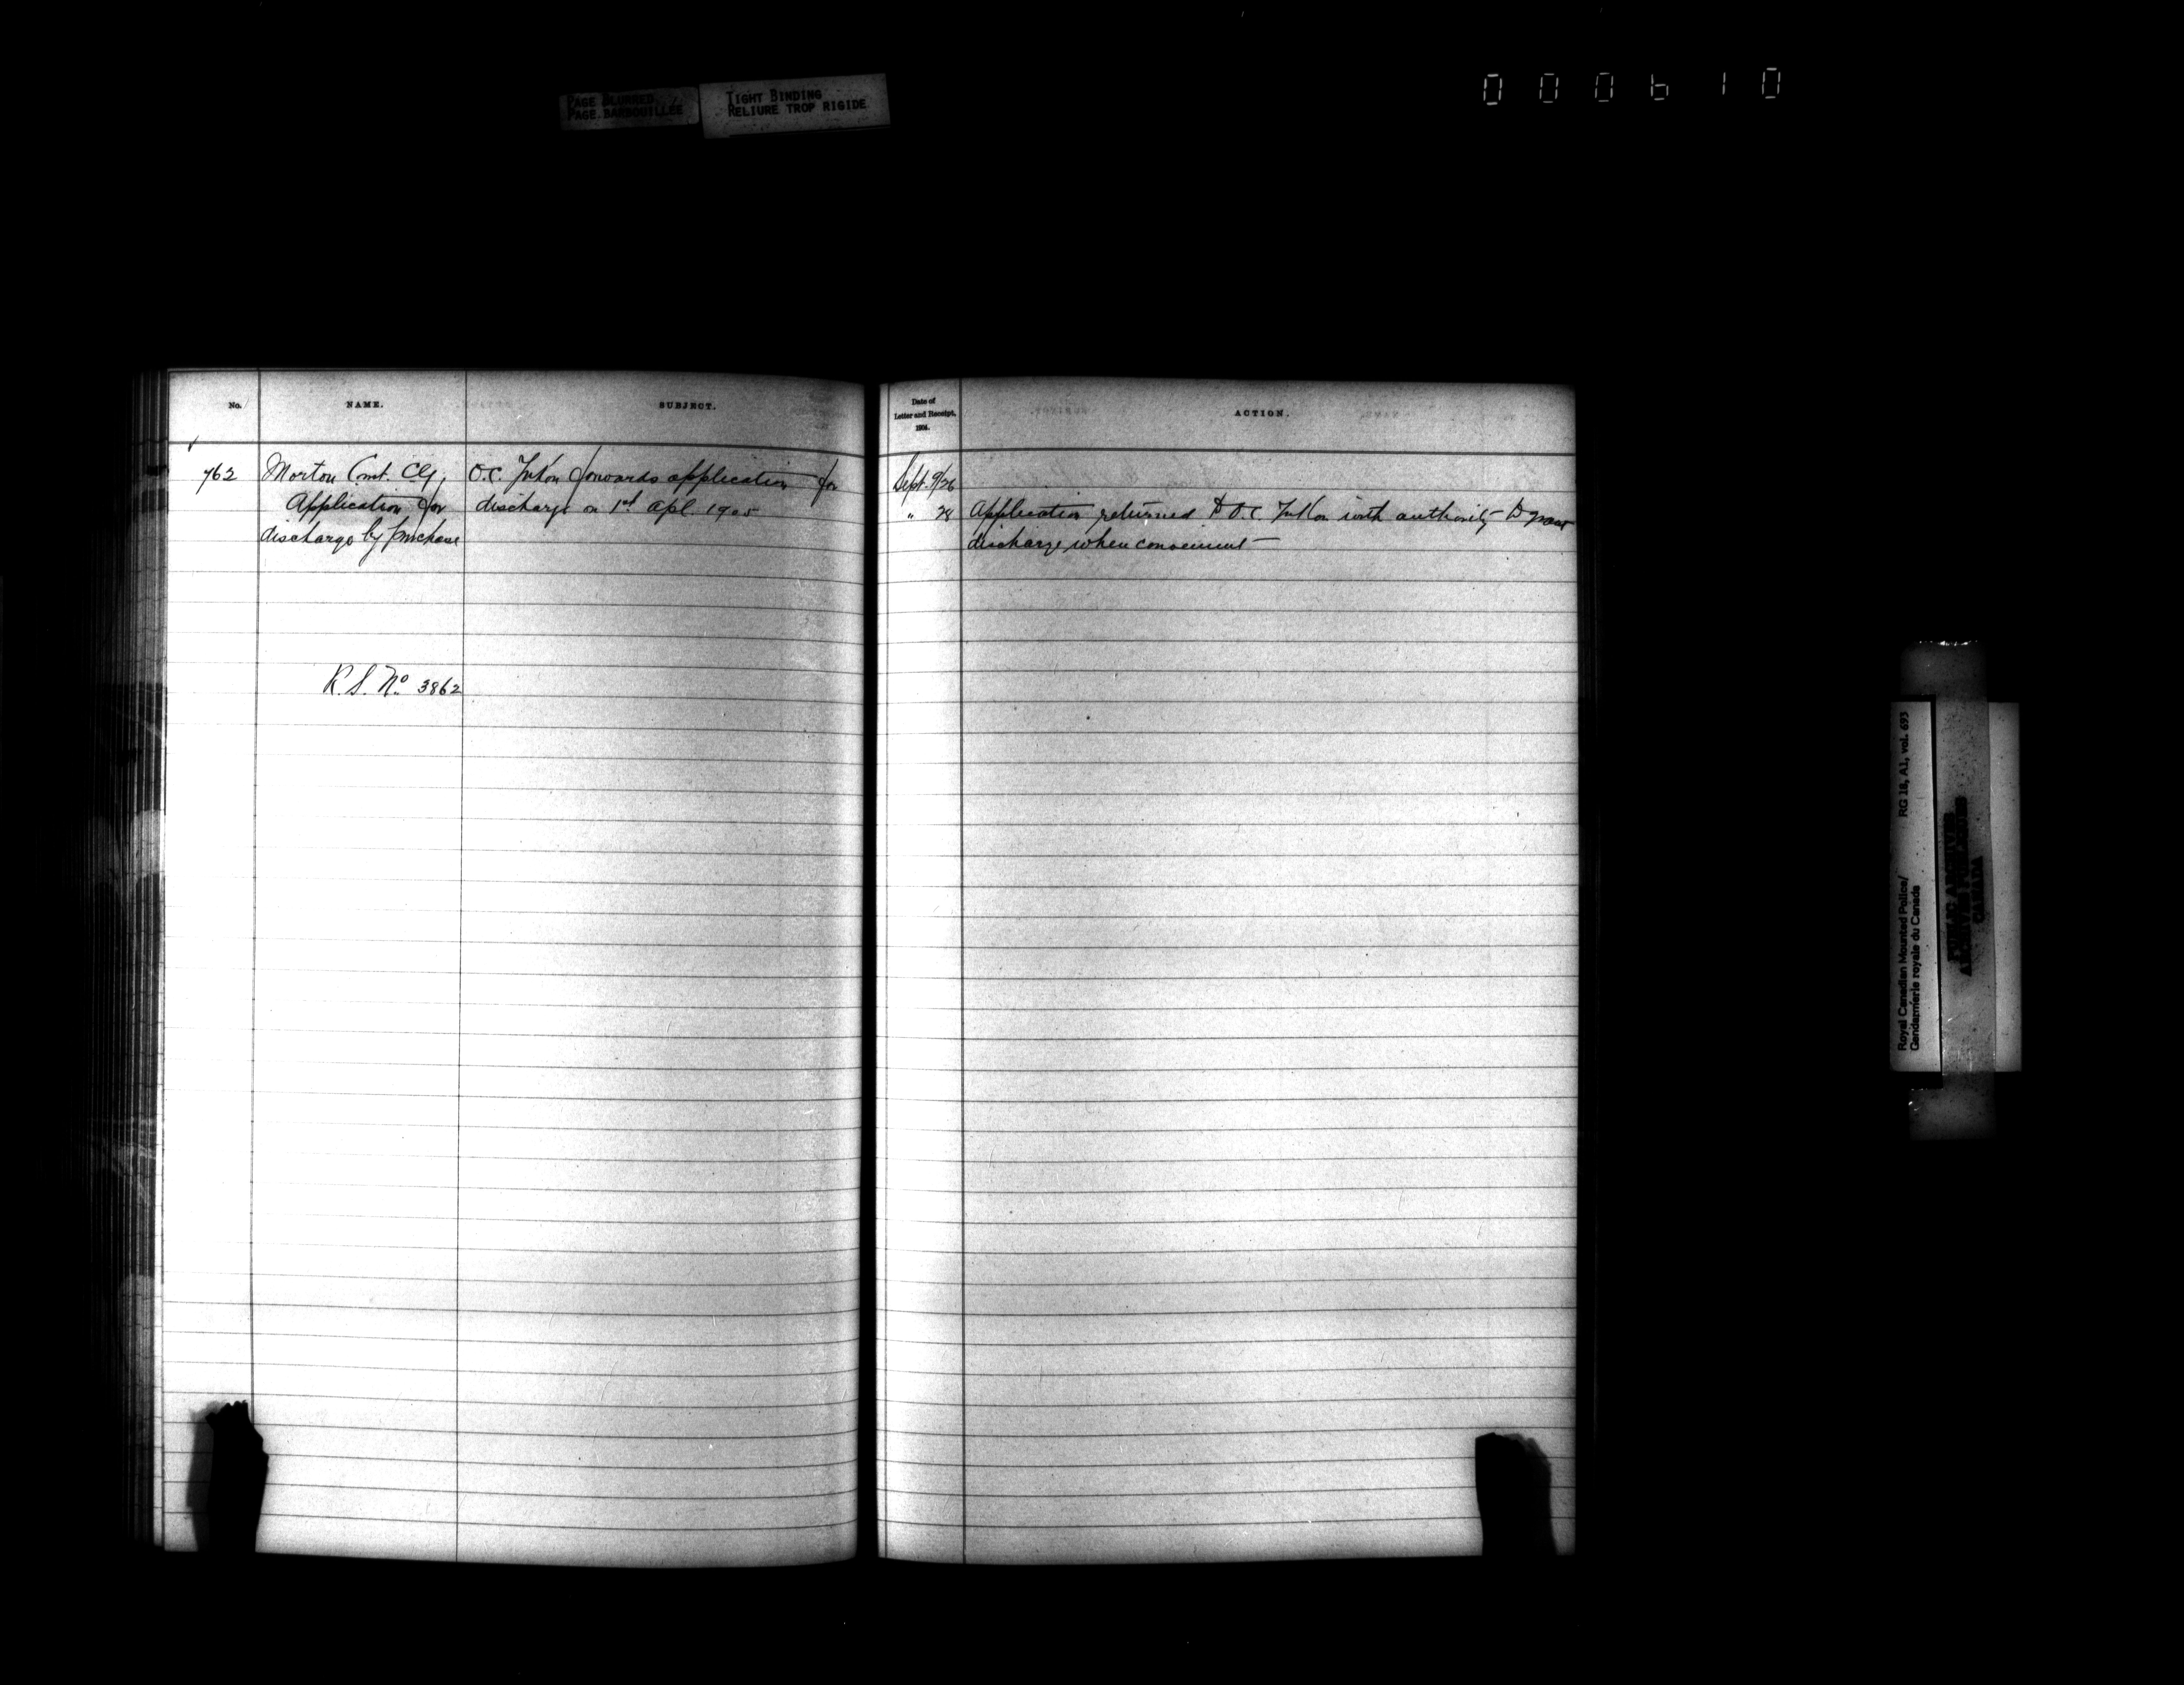 PAGE BLURRED
PAGE BARBOUILLEE
TIGHT BINDING
RELIURE TROP RIGIDE
000610
No.
NAME.
SUBJECT.
Date of
Letter and Receipt,
1904.
ACTION.
762
Morton Const.
Application for
discharge by purchase
O.C. Yukon forwards application for
discharge on 1st Apl. 1905
Sept. 9/26
" 28
Application returned to O.C. Yukon with authority to grant
discharge when convenient
R.S. No 3862
Royal Canadian Mounted Police/
Gendarmerie royale du Canada
RG 18, A1, vol. 693
PUBLIC ARCHIVES
ARCHIVES PUBLIQUES
CANADA